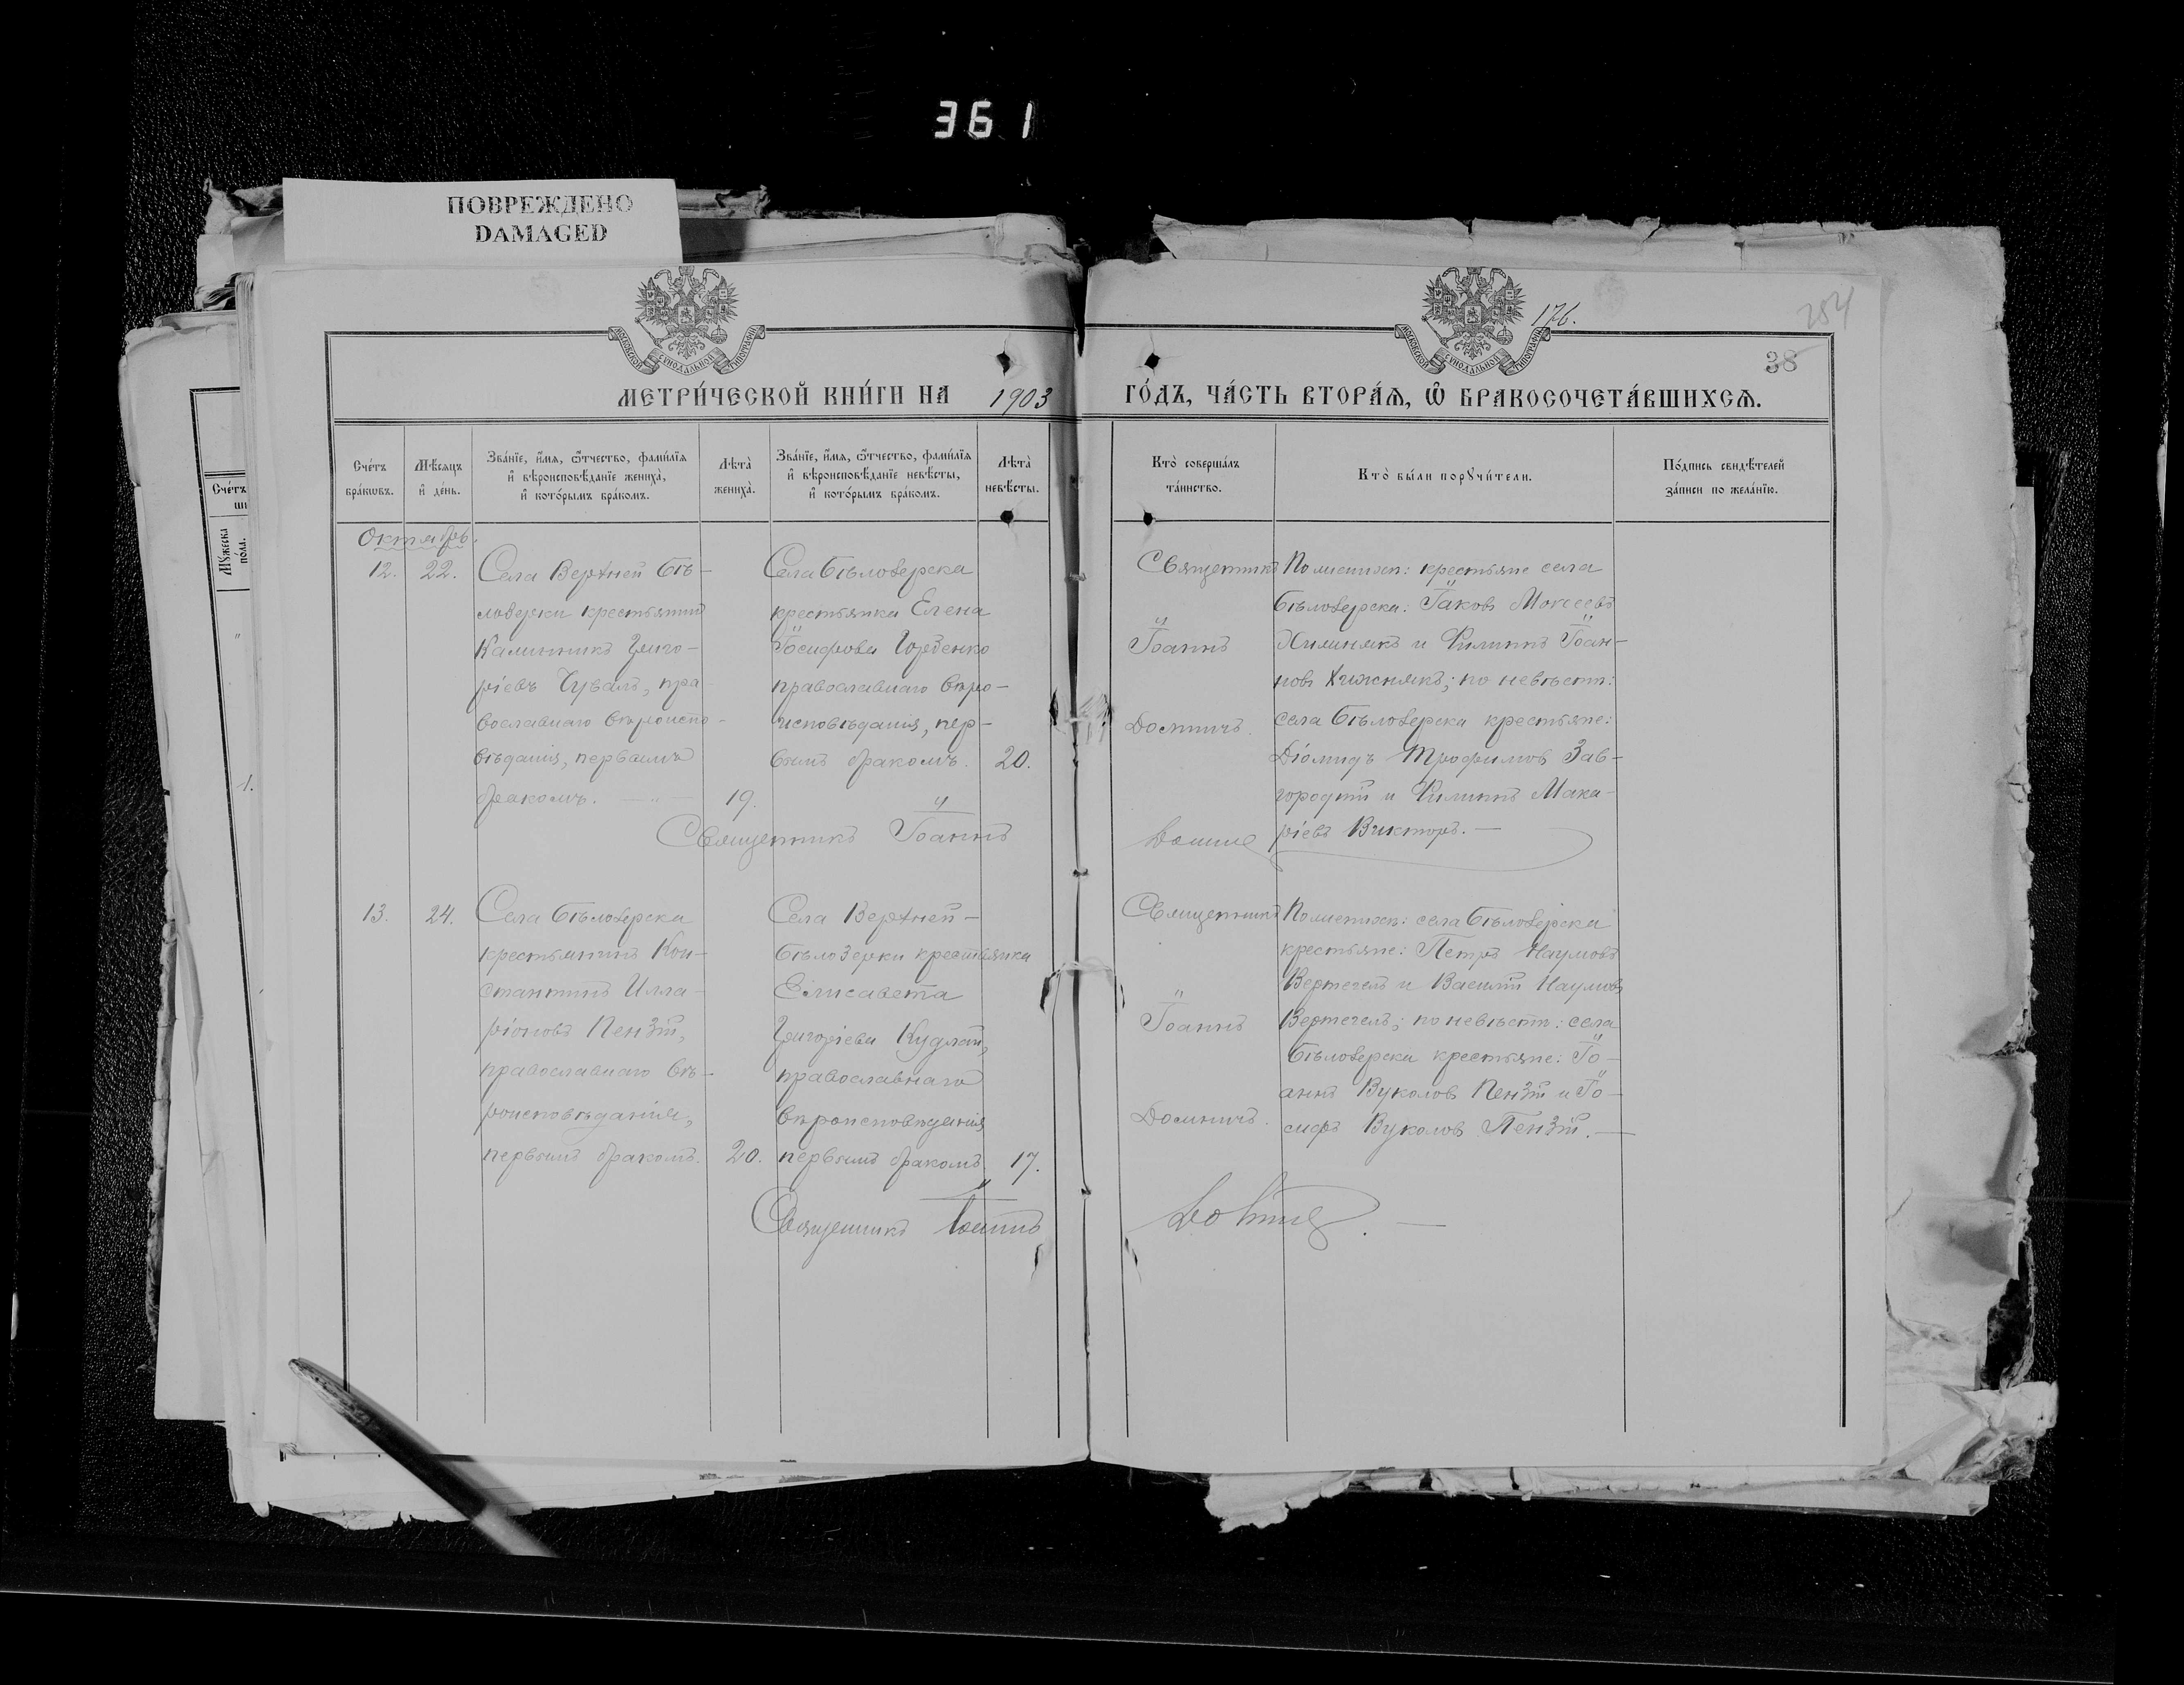 361
ПОВРЕЖДЕНО
DAMAGED
176.
254
38
МЕТРИ́ЧЕСКОЙ КНИ́ГИ НА 1903 ГО́ДЪ, ЧА́СТЬ ВТОРА́Ѧ, Ѽ БРАКОСОЧЕТА́ВШИХСѦ.
Сче́тъ бра́кѡвъ.
Мѣ́сѧцъ и҆ де́нь.
Зва́нїе, и҆́мѧ, ѻ҆́тчество, фами́лїѧ и҆ вѣроисповѣ́данїе жениха̀, и҆ кото́рымъ бра́комъ.
Лѣ́та̀ жениха̀.
Зва́нїе, и҆́мѧ, ѻ҆́тчество, фами́лїѧ и҆ вѣроисповѣ́данїе невѣ́сты, и҆ кото́рымъ бра́комъ.
Лѣ́та̀ невѣ́сты.
Кто̀ соверша́лъ та́инство.
Кто̀ бы́ли порꙋчи́тели.
По́дпись свидѣ́телей за́писи по жела́нїю.
Сче́тъ
Мꙋ́жеска по́ла.
1.
Октябрь.
12.
22.
Села Верхней Бѣ-
лозерки крестьянинъ
Калинникъ Григо-
ріевъ Чувалъ, пра-
вославнаго вѣроиспо-
вѣданія, первымъ
бракомъ.
19.
Села Бѣлозерска
крестьянка Елена
Іосифова Гордѣнко
православнаго вѣро-
исповѣданія, пер-
вымъ бракомъ.
20.
Священникъ
Іоаннъ
Домничъ.
По женихѣ: крестьяне села
Бѣлозерска: Іаковъ Моисеевъ
Хижнякъ и Филиппъ Іоан-
новъ Хижнякъ; по невѣстѣ:
села Бѣлозерска крестьяне:
Діомидъ Трофимовъ Зав-
городній и Филиппъ Мака-
ріевъ Викторъ. —
Священникъ Іоаннъ
13.
24.
Села Бѣлозерска
крестьянинъ Кон-
стантинъ Илла-
ріоновъ Пензій,
православнаго вѣ-
роисповѣданія,
первымъ бракомъ.
20.
Села Верхней-
Бѣлозерки крестьянка
Елисавета
Григоріева Кудлай,
православнаго
вѣроисповѣданія
первымъ бракомъ.
17.
Священникъ
Іоаннъ
Домничъ.
По женихѣ: села Бѣлозерска
крестьяне: Петръ Наумовъ
Вертегелъ и Василій Наумовъ
Вертегелъ; по невѣстѣ: села
Бѣлозерска крестьяне: Іо-
аннъ Вуколовъ Пензій и Іо-
сифъ Вуколовъ Пензій. —
Священникъ Іоаннъ